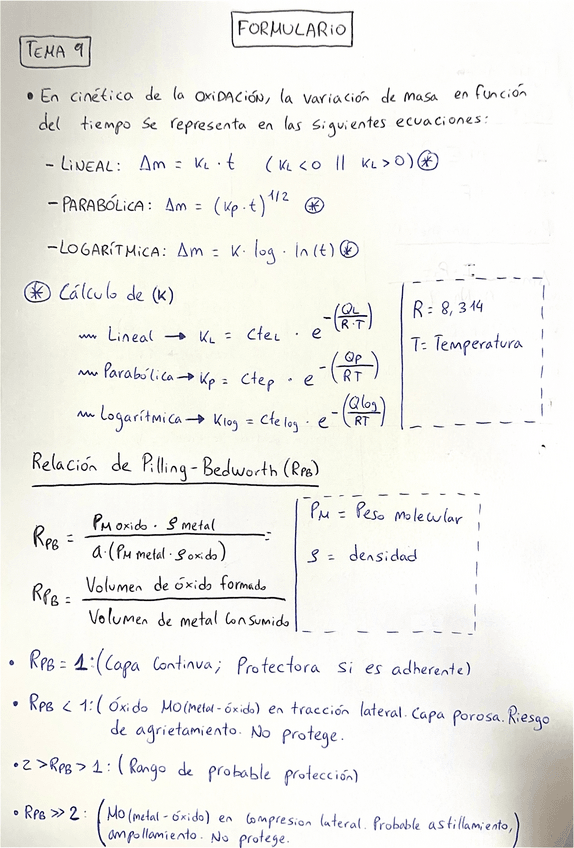 FORMULARIO
TEMA 9
• En cinética de la OXIDACIÓN, la variación de masa en función
del tiempo se representa en las siguientes ecuaciones:
- LINEAL: Δm = KL · t (KL < 0 || KL > 0) *
- PARABÓLICA: Δm = (Kp · t)^1/2 *
- LOGARÍTMICA: Δm = K · log · ln(t) *
* Cálculo de (K)
Lineal → KL = CteL · e^-(QL/R·T)
Parabólica → Kp = Ctep · e^-(Qp/RT)
Logarítmica → Klog = Ctelog · e^-(Qlog/RT)
R = 8,314
T = Temperatura
Relación de Pilling-Bedworth (RPB)
RPB = PM oxido · ρ metal / a·(PM metal · ρ oxido) =
RPB = Volumen de óxido formado / Volumen de metal consumido
PM = Peso molecular
ρ = densidad
• RPB = 1: (Capa continua; Protectora si es adherente)
• RPB < 1: (Óxido MO (metal-óxido) en tracción lateral. Capa porosa. Riesgo
de agrietamiento. No protege.
• 2 > RPB > 1: (Rango de probable protección)
• RPB >> 2: (MO (metal-óxido) en compresion lateral. Probable astillamiento,
ampollamiento. No protege.)